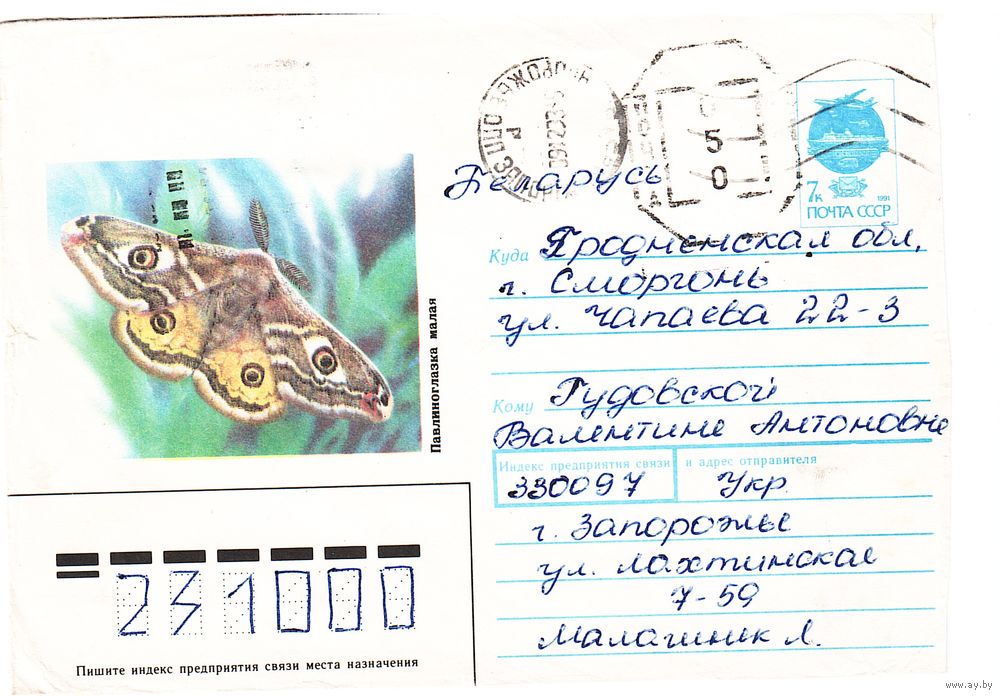 ЗАПОРОЖЬЕ ОПП
5
0
7к
1991
ПОЧТА СССР
Беларусь
Куда Гродненская обл,
г. Сморгонь
ул. Чапаева 22-3
Кому Гудовской
Валентине Антоновне
Павлиноглазка малая
Индекс предприятия связи и адрес отправителя
330097 Укр.
г. Запорожье
ул. Лахтинская
7-59
Малашник Л.
231000
Пишите индекс предприятия связи места назначения
www.ay.by